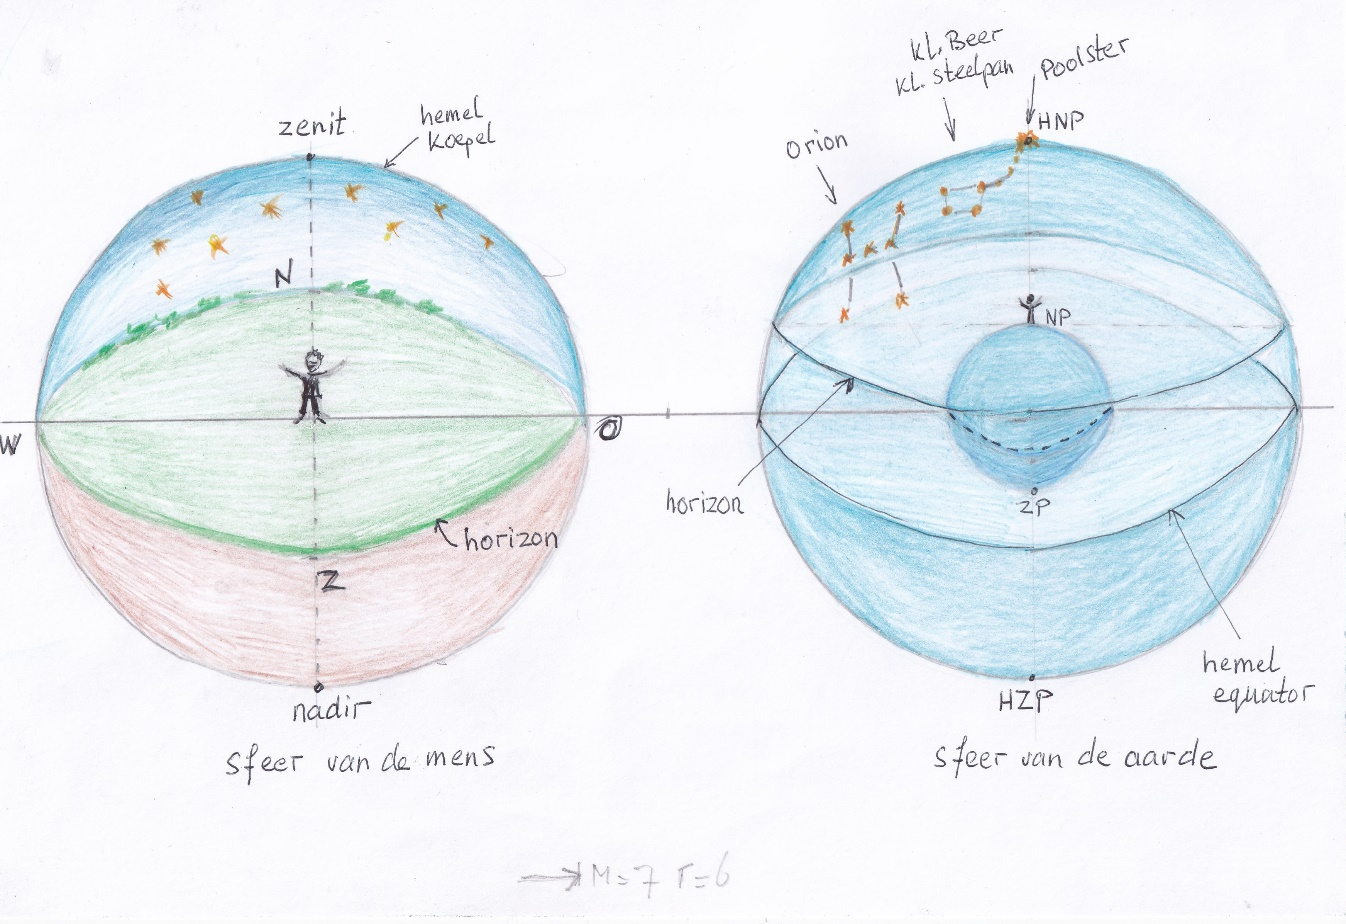 zenit
hemel
koepel
N
W
O
horizon
Z
nadir
sfeer van de mens
kl. Beer
kl. steelpan
Poolster
HNP
Orion
NP
horizon
ZP
hemel
equator
HZP
sfeer van de aarde
→ M=7 r=6